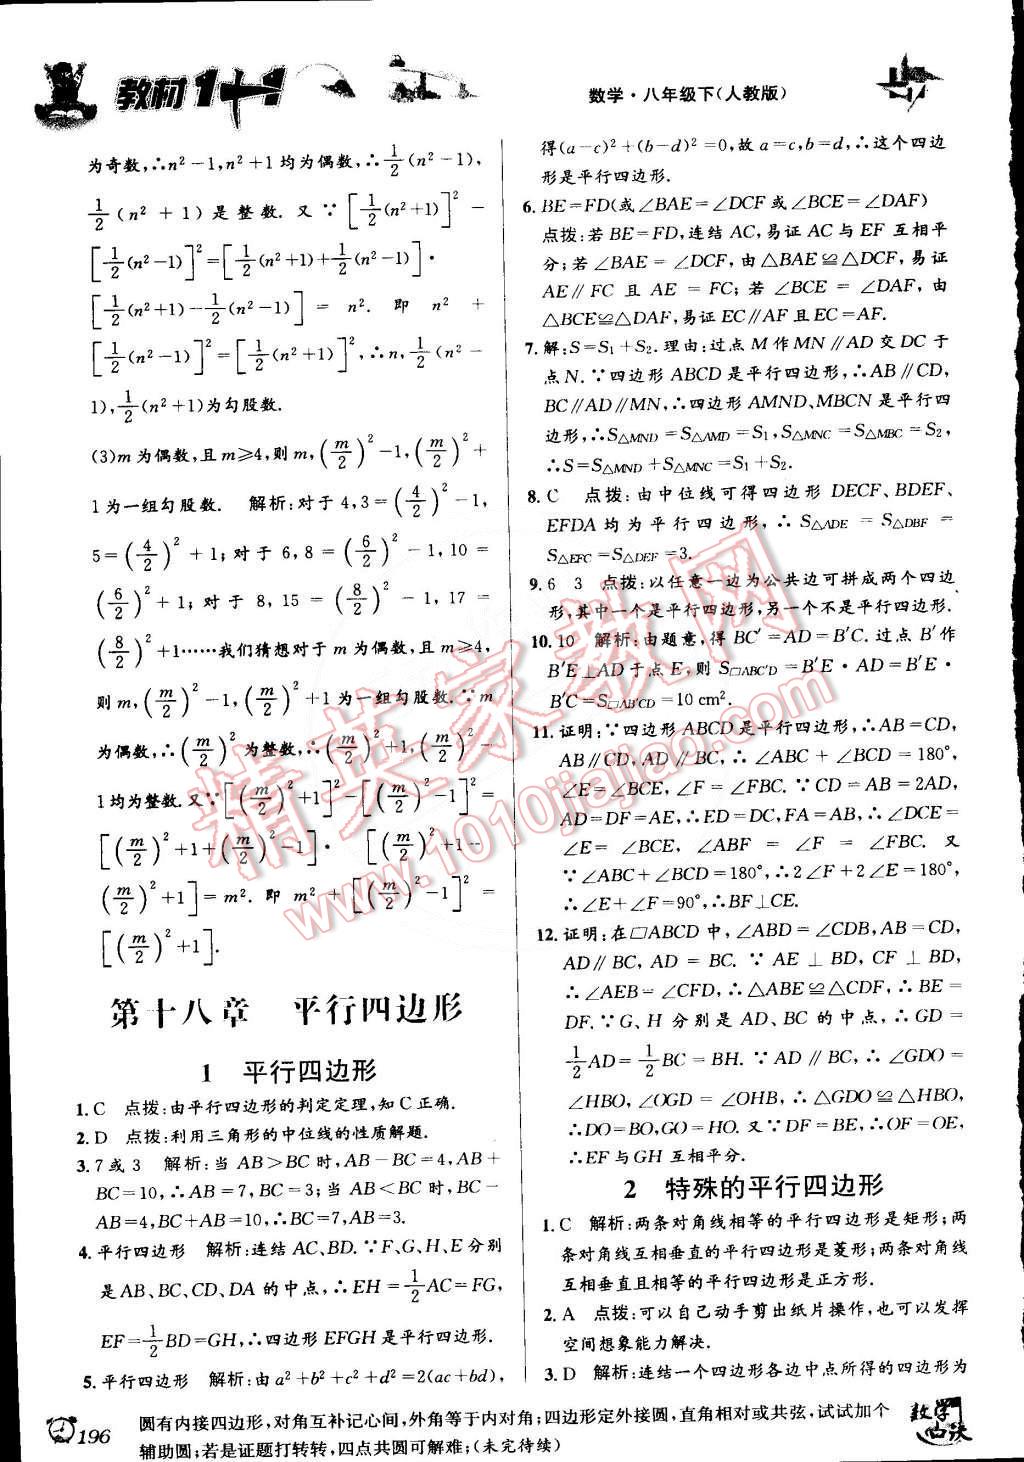 教材1+1
数学·八年级下(人教版)
为奇数,∴n²-1,n²+1均为偶数,∴1/2(n²-1),
1/2(n²+1)是整数.又∵[1/2(n²+1)]²-
[1/2(n²-1)]²=[1/2(n²+1)+1/2(n²-1)]·
[1/2(n²+1)-1/2(n²-1)]=n².即 n²+
[1/2(n²-1)]²=[1/2(n²+1)]²,∴n,1/2(n²-
1),1/2(n²+1)为勾股数.
(3)m为偶数,且m≥4,则m,(m/2)²-1,(m/2)²+
1为一组勾股数. 解析:对于4,3=(4/2)²-1,
5=(4/2)²+1;对于6,8=(6/2)²-1,10=
(6/2)²+1;对于8,15=(8/2)²-1,17=
(8/2)²+1……我们猜想对于m为偶数,且m≥4,
则m,(m/2)²-1,(m/2)²+1为一组勾股数.∵m
为偶数,∴(m/2)²为整数,∴(m/2)²+1,(m/2)²-
1均为整数.又∵[(m/2)²+1]²-[(m/2)²-1]²=
[(m/2)²+1+(m/2)²-1]·[(m/2)²+1-
(m/2)²+1]=m².即 m²+[(m/2)²-1]²=
[(m/2)²+1]².
第十八章 平行四边形
1 平行四边形
1.C 点拨:由平行四边形的判定定理,知C正确.
2.D 点拨:利用三角形的中位线的性质解题.
3.7或3 解析:当AB>BC时,AB-BC=4,AB+
BC=10,∴AB=7,BC=3;当AB<BC时,BC-
AB=4,BC+AB=10,∴BC=7,AB=3.
4.平行四边形 解析:连结AC、BD.∵F、G、H、E分别
是AB、BC、CD、DA的中点,∴EH=1/2AC=FG,
EF=1/2BD=GH,∴四边形EFGH是平行四边形.
5.平行四边形 解析:由a²+b²+c²+d²=2(ac+bd),
得(a-c)²+(b-d)²=0,故a=c,b=d,∴这个四边
形是平行四边形.
6.BE=FD(或∠BAE=∠DCF或∠BCE=∠DAF)
点拨:若BE=FD,连结AC,易证AC与EF互相平
分;若∠BAE=∠DCF,由△BAE≌△DCF,易证
AE∥FC且AE=FC;若∠BCE=∠DAF,由
△BCE≌△DAF,易证EC∥AF且EC=AF.
7.解:S=S₁+S₂.理由:过点M作MN∥AD交DC于
点N.∵四边形ABCD是平行四边形,∴AB∥CD,
BC∥AD∥MN,∴四边形AMND、MBCN是平行四
边形,∴S△MND=S△AMD=S₁,S△MNC=S△MBC=S₂,
∴S=S△MND+S△MNC=S₁+S₂.
8.C 点拨:由中位线可得四边形DECF、BDEF、
EFDA均为平行四边形,∴S△ADE=S△DBF=
S△EFC=S△DEF=3.
9.6 3 点拨:以任意一边为公共边可拼成两个四边
形,其中一个是平行四边形,另一个不是平行四边形.
10.10 解析:由题意,得BC′=AD=B′C.过点B′作
B′E⊥AD于点E,则S□ABC′D=B′E·AD=B′E·
B′C=S□AB′CD=10 cm².
11.证明:∵四边形ABCD是平行四边形,∴AB=CD,
AB∥CD,AD∥BC,∴∠ABC+∠BCD=180°,
∠E=∠BCE,∠F=∠FBC.∵CD=AB=2AD,
AD=DF=AE,∴ED=DC,FA=AB,∴∠DCE=
∠E=∠BCE,∠ABF=∠F=∠FBC.又
∵∠ABC+∠BCD=180°,∴2∠F+2∠E=180°,
∴∠E+∠F=90°,∴BF⊥CE.
12.证明:在□ABCD中,∠ABD=∠CDB,AB=CD,
AD∥BC,AD=BC.∵AE⊥BD,CF⊥BD,
∴∠AEB=∠CFD,∴△ABE≌△CDF,∴BE=
DF.∵G、H分别是AD、BC的中点,∴GD=
1/2AD=1/2BC=BH.∵AD∥BC,∴∠GDO=
∠HBO,∠OGD=∠OHB,∴△GDO≌△HBO,
∴DO=BO,GO=HO.又∵DF=BE,∴OF=OE,
∴EF与GH互相平分.
2 特殊的平行四边形
1.C 解析:两条对角线相等的平行四边形是矩形;两
条对角线互相垂直的平行四边形是菱形;两条对角线
互相垂直且相等的平行四边形是正方形.
2.A 点拨:可以自己动手剪出纸片操作,也可以发挥
空间想象能力解决.
3.D 解析:连结一个四边形各边中点所得的四边形为
精英家教网
www.1010jiajiao.com
196
圆有内接四边形,对角互补记心间,外角等于内对角;四边形定外接圆,直角相对或共弦,试试加个
辅助圆;若是证题打转转,四点共圆可解难;(未完待续)
数学口诀